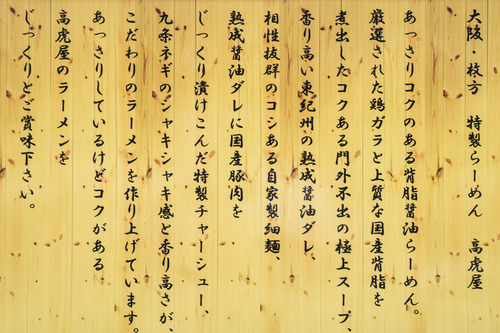 大阪・枚方　特製らーめん　高虎屋
あっさりコクのある背脂醤油らーめん。
厳選された鶏ガラと上質な国産背脂を
煮出したコクある門外不出の極上スープ、
香り高い東紀州の熟成醤油ダレ、
相性抜群のコシある自家製細麺、
熟成醤油ダレに国産豚肉を
じっくり漬けこんだ特製チャーシュー、
九条ネギのシャキシャキ感と香り高さが、
こだわりのラーメンを作り上げています。
あっさりしているけどコクがある
高虎屋のラーメンを
じっくりとご賞味下さい。